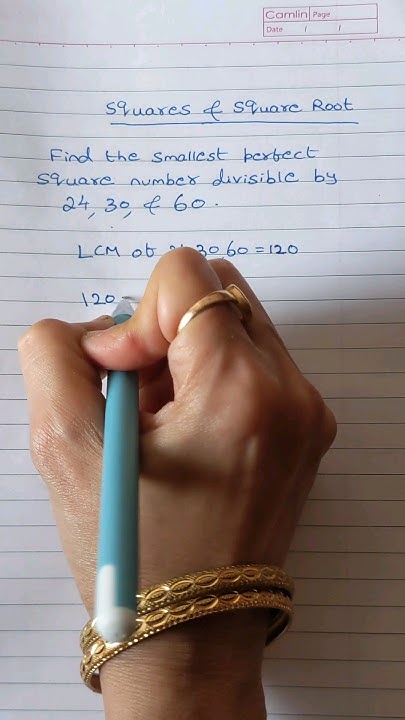 Camlin Page
Date / /
Squares & Square Root
Find the smallest perfect
square number divisible by
24, 30, & 60.
LCM of 30 60 = 120
120